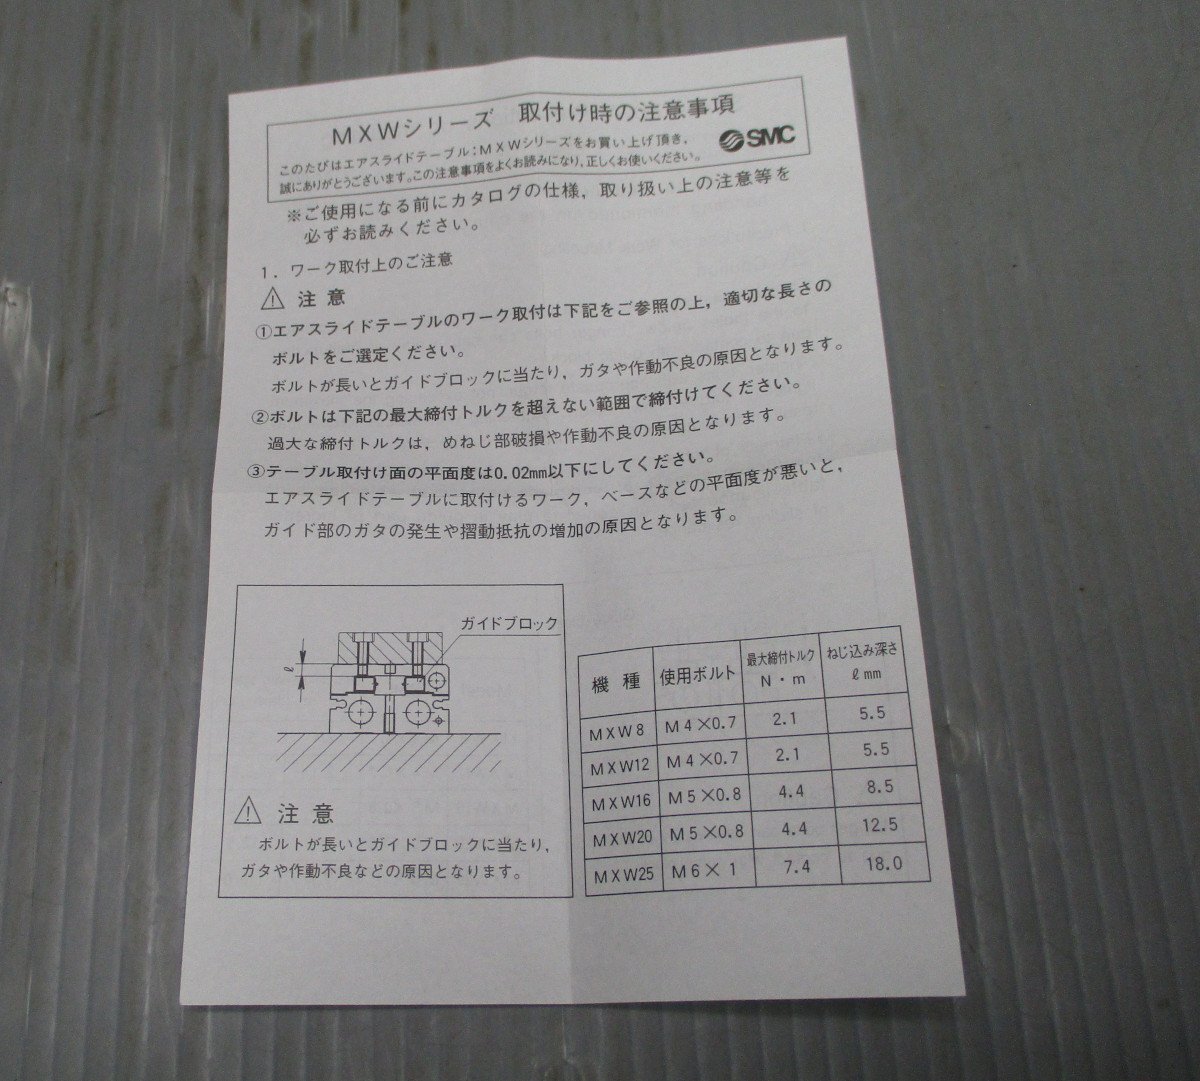 MXWシリーズ 取付け時の注意事項
このたびはエアスライドテーブル：MXWシリーズをお買い上げ頂き，
誠にありがとうございます。この注意事項をよくお読みになり，正しくお使いください。
SMC
※ご使用になる前にカタログの仕様，取り扱い上の注意等を
必ずお読みください。
1．ワーク取付上のご注意
注意
①エアスライドテーブルのワーク取付は下記をご参照の上，適切な長さの
ボルトをご選定ください。
ボルトが長いとガイドブロックに当たり，ガタや作動不良の原因となります。
②ボルトは下記の最大締付トルクを超えない範囲で締付けてください。
過大な締付トルクは，めねじ部破損や作動不良の原因となります。
③テーブル取付け面の平面度は0.02mm以下にしてください。
エアスライドテーブルに取付けるワーク，ベースなどの平面度が悪いと，
ガイド部のガタの発生や摺動抵抗の増加の原因となります。
ガイドブロック
ℓ
注意
ボルトが長いとガイドブロックに当たり，
ガタや作動不良などの原因となります。
機種 使用ボルト 最大締付トルク N・m ねじ込み深さ ℓ mm
MXW8 M4×0.7 2.1 5.5
MXW12 M4×0.7 2.1 5.5
MXW16 M5×0.8 4.4 8.5
MXW20 M5×0.8 4.4 12.5
MXW25 M6×1 7.4 18.0